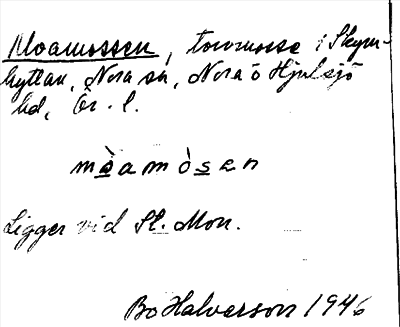 Moamossen, torvmosse i Skrym-
hyttan, Nora sn, Nora o Hjulsjö
hd, Ör. l.
mòamòsen
Ligger vid St. Mon.
Bo Halvarson 1946